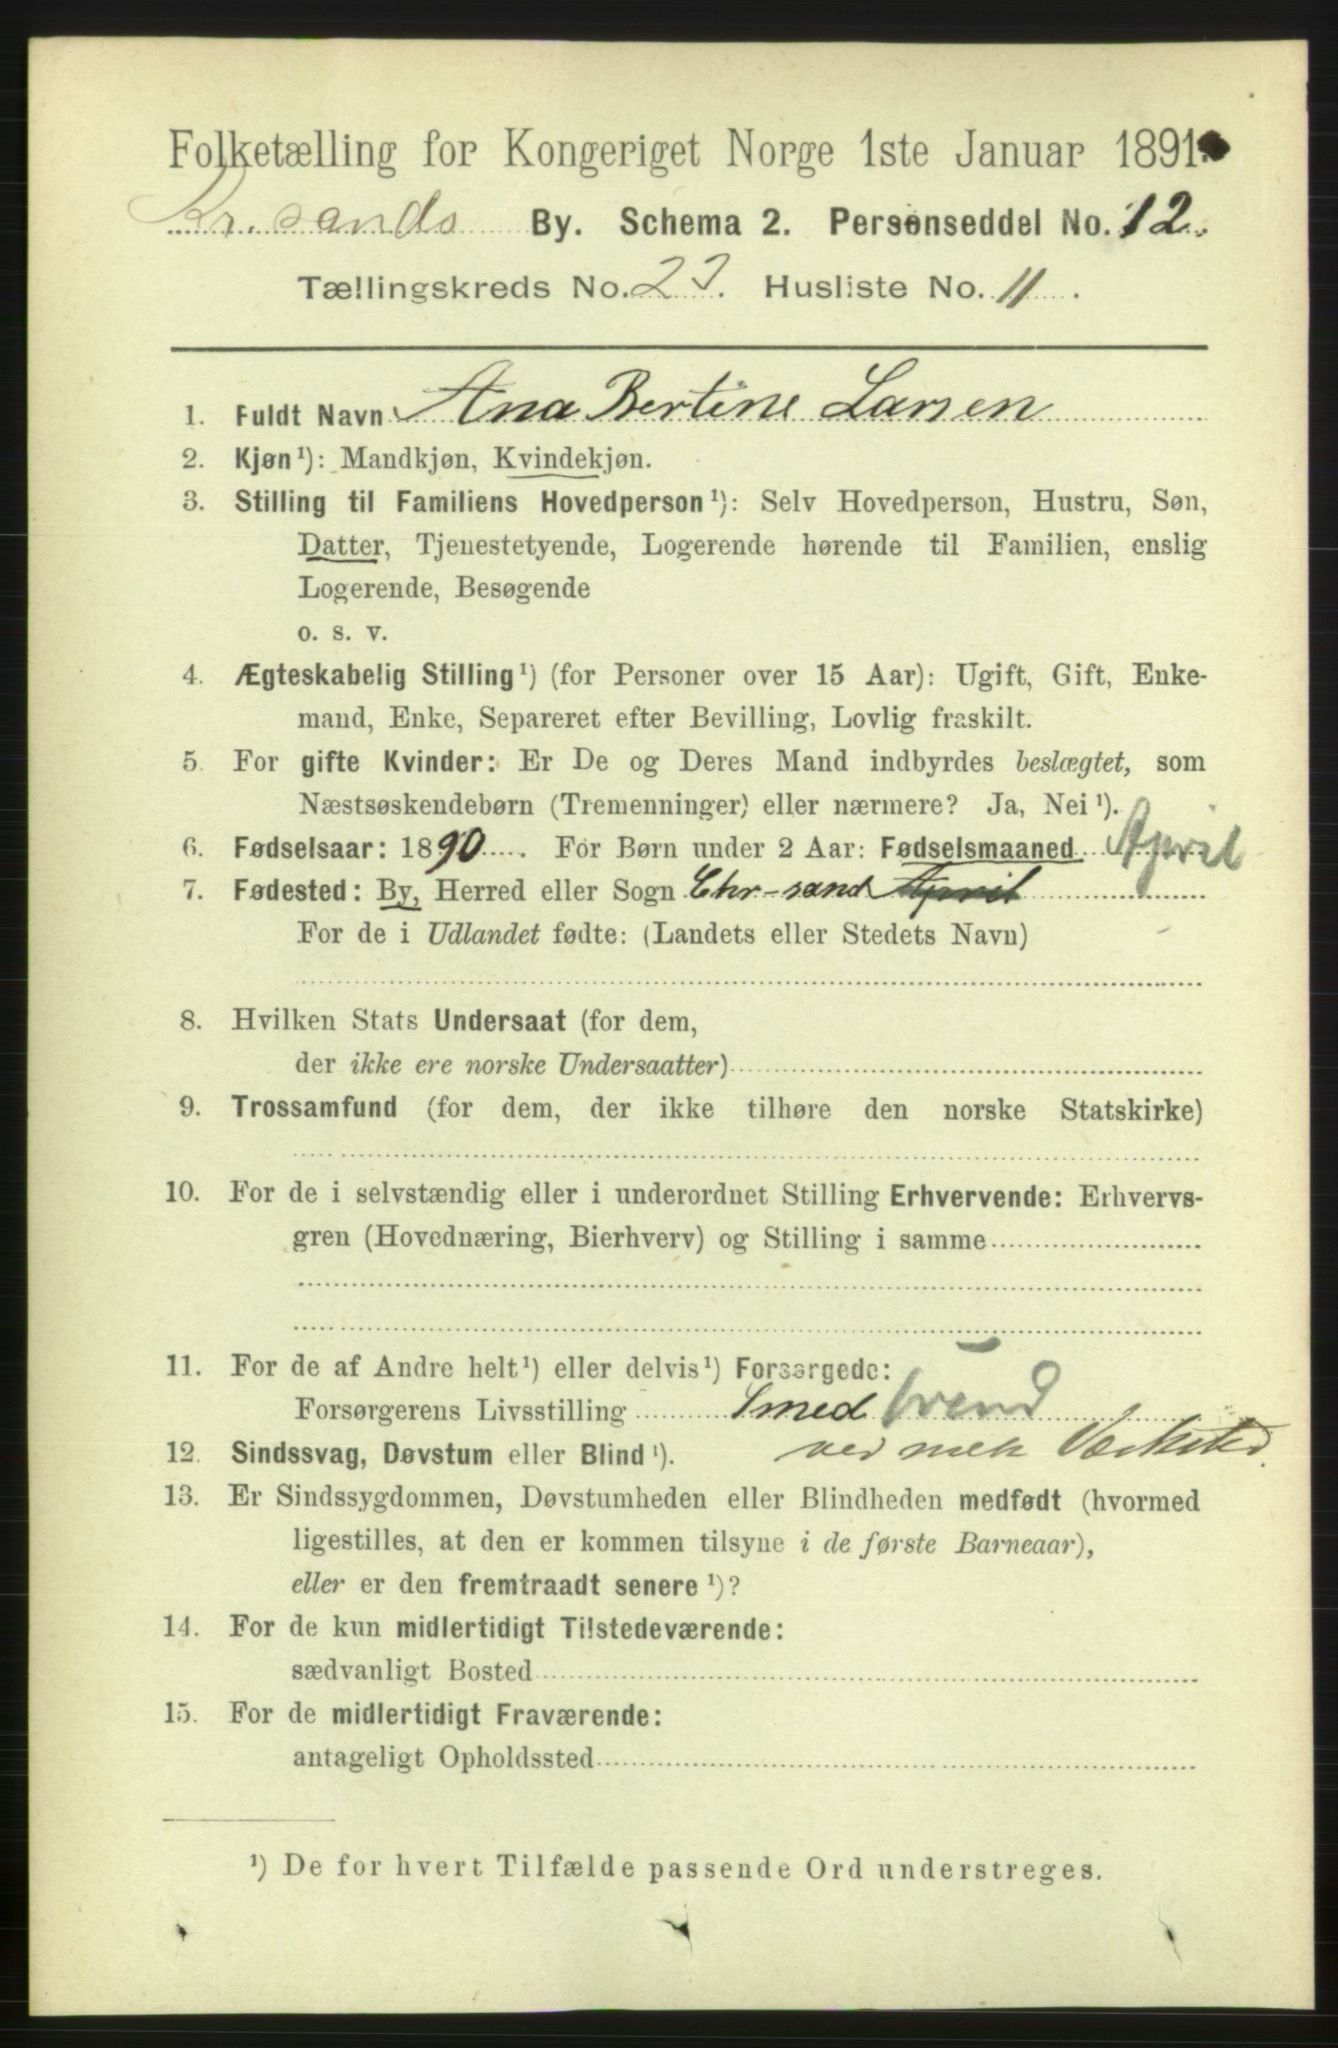 Folketælling for Kongeriget Norge 1ste Januar 1891.
Kr.sands By. Schema 2. Personseddel No. 12.
Tællingskreds No. 23. Husliste No. 11.
1. Fuldt Navn Ana Bertine Larsen
2. Kjøn¹): Mandkjøn, Kvindekjøn.
3. Stilling til Familiens Hovedperson¹): Selv Hovedperson, Hustru, Søn,
Datter, Tjenestetyende, Logerende hørende til Familien, enslig
Logerende, Besøgende
o. s. v.
4. Ægteskabelig Stilling¹) (for Personer over 15 Aar): Ugift, Gift, Enke-
mand, Enke, Separeret efter Bevilling, Lovlig fraskilt.
5. For gifte Kvinder: Er De og Deres Mand indbyrdes beslægtet, som
Næstsøskendebørn (Tremenninger) eller nærmere? Ja, Nei¹).
6. Fødselsaar: 1890. For Børn under 2 Aar: Fødselsmaaned April
7. Fødested: By, Herred eller Sogn Chr-sand April
For de i Udlandet fødte: (Landets eller Stedets Navn)
8. Hvilken Stats Undersaat (for dem,
der ikke ere norske Undersaatter)
9. Trossamfund (for dem, der ikke tilhøre den norske Statskirke)
10. For de i selvstændig eller i underordnet Stilling Erhvervende: Erhvervs-
gren (Hovednæring, Bierhverv) og Stilling i samme
11. For de af Andre helt¹) eller delvis¹) Forsørgede:
Forsørgerens Livsstilling Smed
12. Sindssvag, Døvstum eller Blind¹). ved mek Værksted
13. Er Sindssygdommen, Døvstumheden eller Blindheden medfødt (hvormed
ligestilles, at den er kommen tilsyne i de første Barneaar),
eller er den fremtraadt senere¹)?
14. For de kun midlertidigt Tilstedeværende:
sædvanligt Bosted
15. For de midlertidigt Fraværende:
antageligt Opholdssted
¹) De for hvert Tilfælde passende Ord understreges.